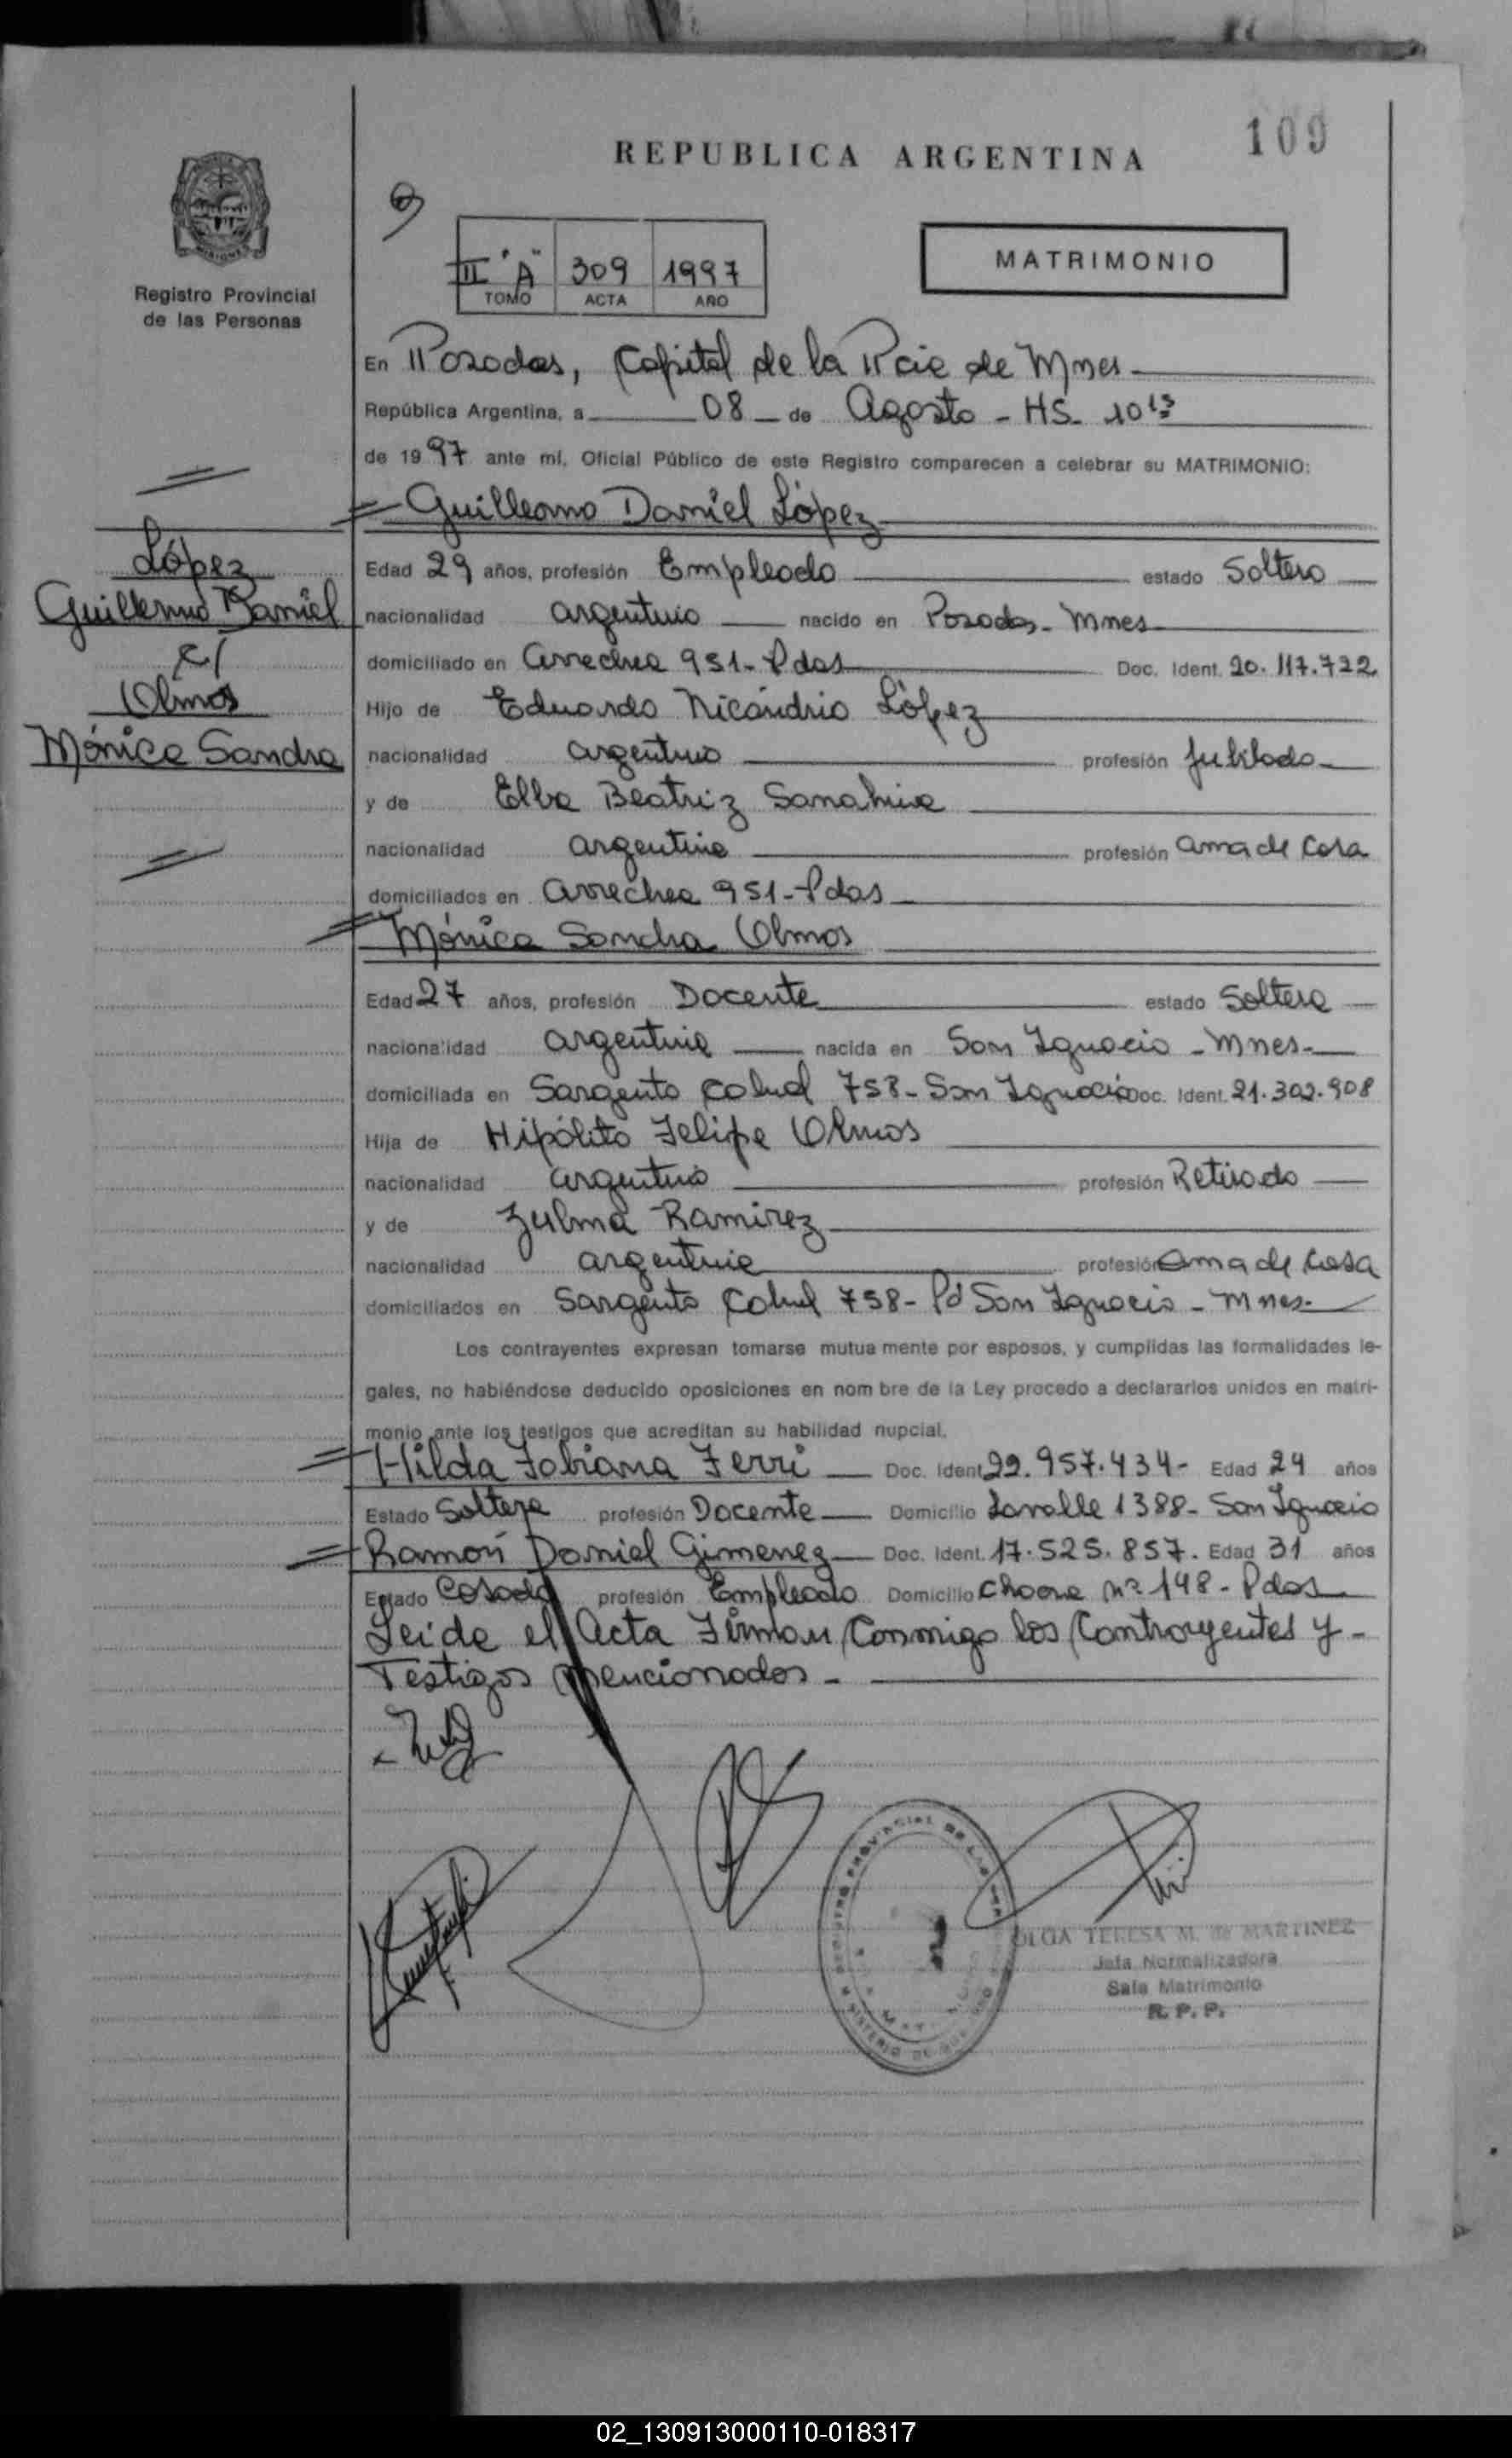 109
REPUBLICA ARGENTINA
II "A" 309 1997
TOMO ACTA AÑO
MATRIMONIO
Registro Provincial
de las Personas
En Posadas, Capital de la Pcia de Mnes
República Argentina, a 08 de Agosto - HS. 10 15
de 1997 ante mí, Oficial Público de este Registro comparecen a celebrar su MATRIMONIO:
Guillermo Daniel López
López
Guillermo Daniel
c/
Olmos
Mónica Sandra
Edad 29 años, profesión Empleado estado Soltero
nacionalidad argentino nacido en Posadas - Mnes
domiciliado en Arrechea 951 - Pdas Doc. Ident. 20.117.722
Hijo de Eduardo Nicandrio López
nacionalidad argentino profesión Jubilado
y de Elba Beatriz Sanabria
nacionalidad argentina profesión ama de casa
domiciliados en Arrechea 951 - Pdas
Mónica Sandra Olmos
Edad 27 años, profesión Docente estado Soltera
nacionalidad argentina nacida en San Ignacio - Mnes.
domiciliada en Sargento Cabral 758 - San Ignacio Doc. Ident. 21.302.908
Hija de Hipólito Felipe Olmos
nacionalidad argentino profesión Retirado
y de Zulma Ramirez
nacionalidad argentina profesión Ama de casa
domiciliados en Sargento Cabral 758 - San Ignacio - Mnes.
Los contrayentes expresan tomarse mutua mente por esposos, y cumplidas las formalidades le-
gales, no habiéndose deducido oposiciones en nom bre de la Ley procedo a declararlos unidos en matri-
monio ante los testigos que acreditan su habilidad nupcial.
Hilda Fabiana Ferri Doc. Ident. 22.957.434 - Edad 24 años
Estado Soltera profesión Docente Domicilio Lavalle 1388 - San Ignacio
Ramón Daniel Gimenez Doc. Ident. 17.525.857. Edad 31 años
Estado Casado profesión Empleado Domicilio nº 148 - Pdas
Leida el Acta Firman Conmigo los Contrayentes y -
Testigos mencionados -
OLGA TERESA M. de MARTINEZ
Jefa Normalizadora
Sala Matrimonio
R. P. P.
02_130913000110-018317